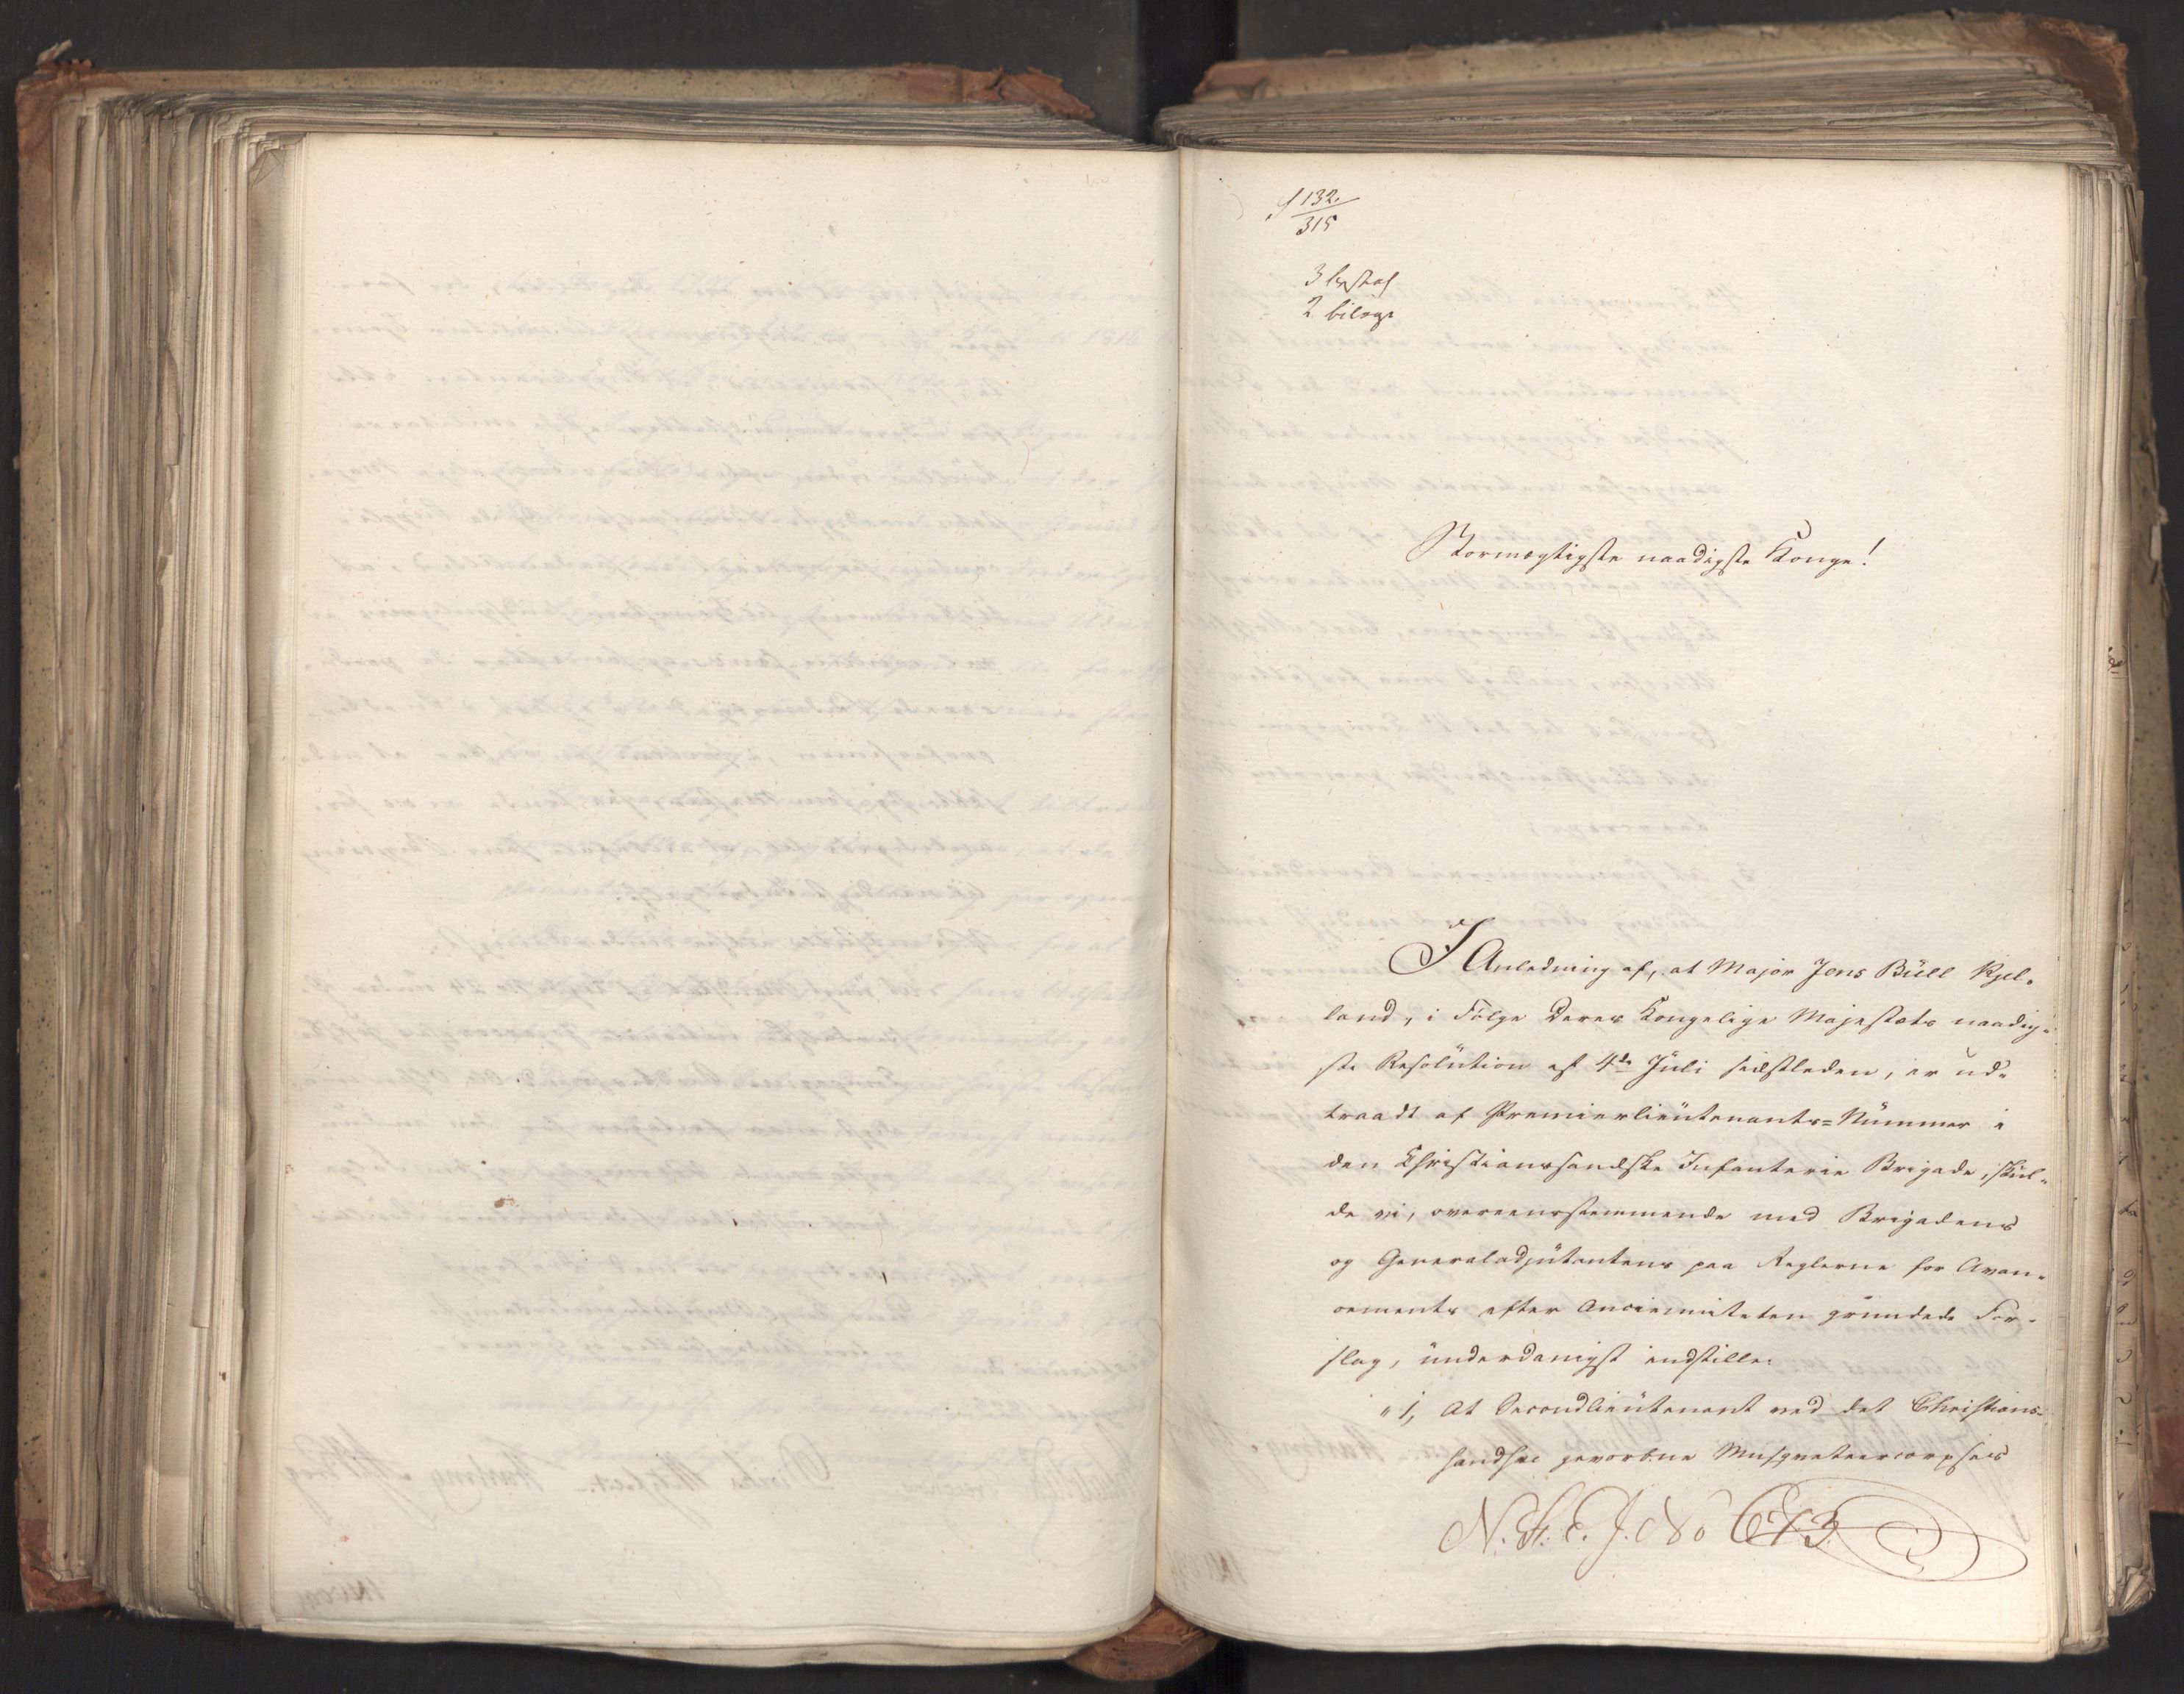 132.
315
3 bestal
2 bilage
Stormægtigste naadigste Konge!
I Anledning af, at Major Jens Büll Kjel-
land, i Følge Deres Kongelige Majestæts naadig-
ste Resolution af 4de Juli sidstleden, er ud-
traadt af Premierlieutenants-Nummer i
den Christianssandske Infanterie Brigade, skul-
de vi, overeensstemmende med Brigadens
og Generaladjutantens paa Reglerne for Avan-
cements efter Ancienniteten grundede For-
slag, underdanigst indstille:
"1, At Secondlieutenant ved det Christians-
sandske gevorbne Musqueteercorpses
N. J. No